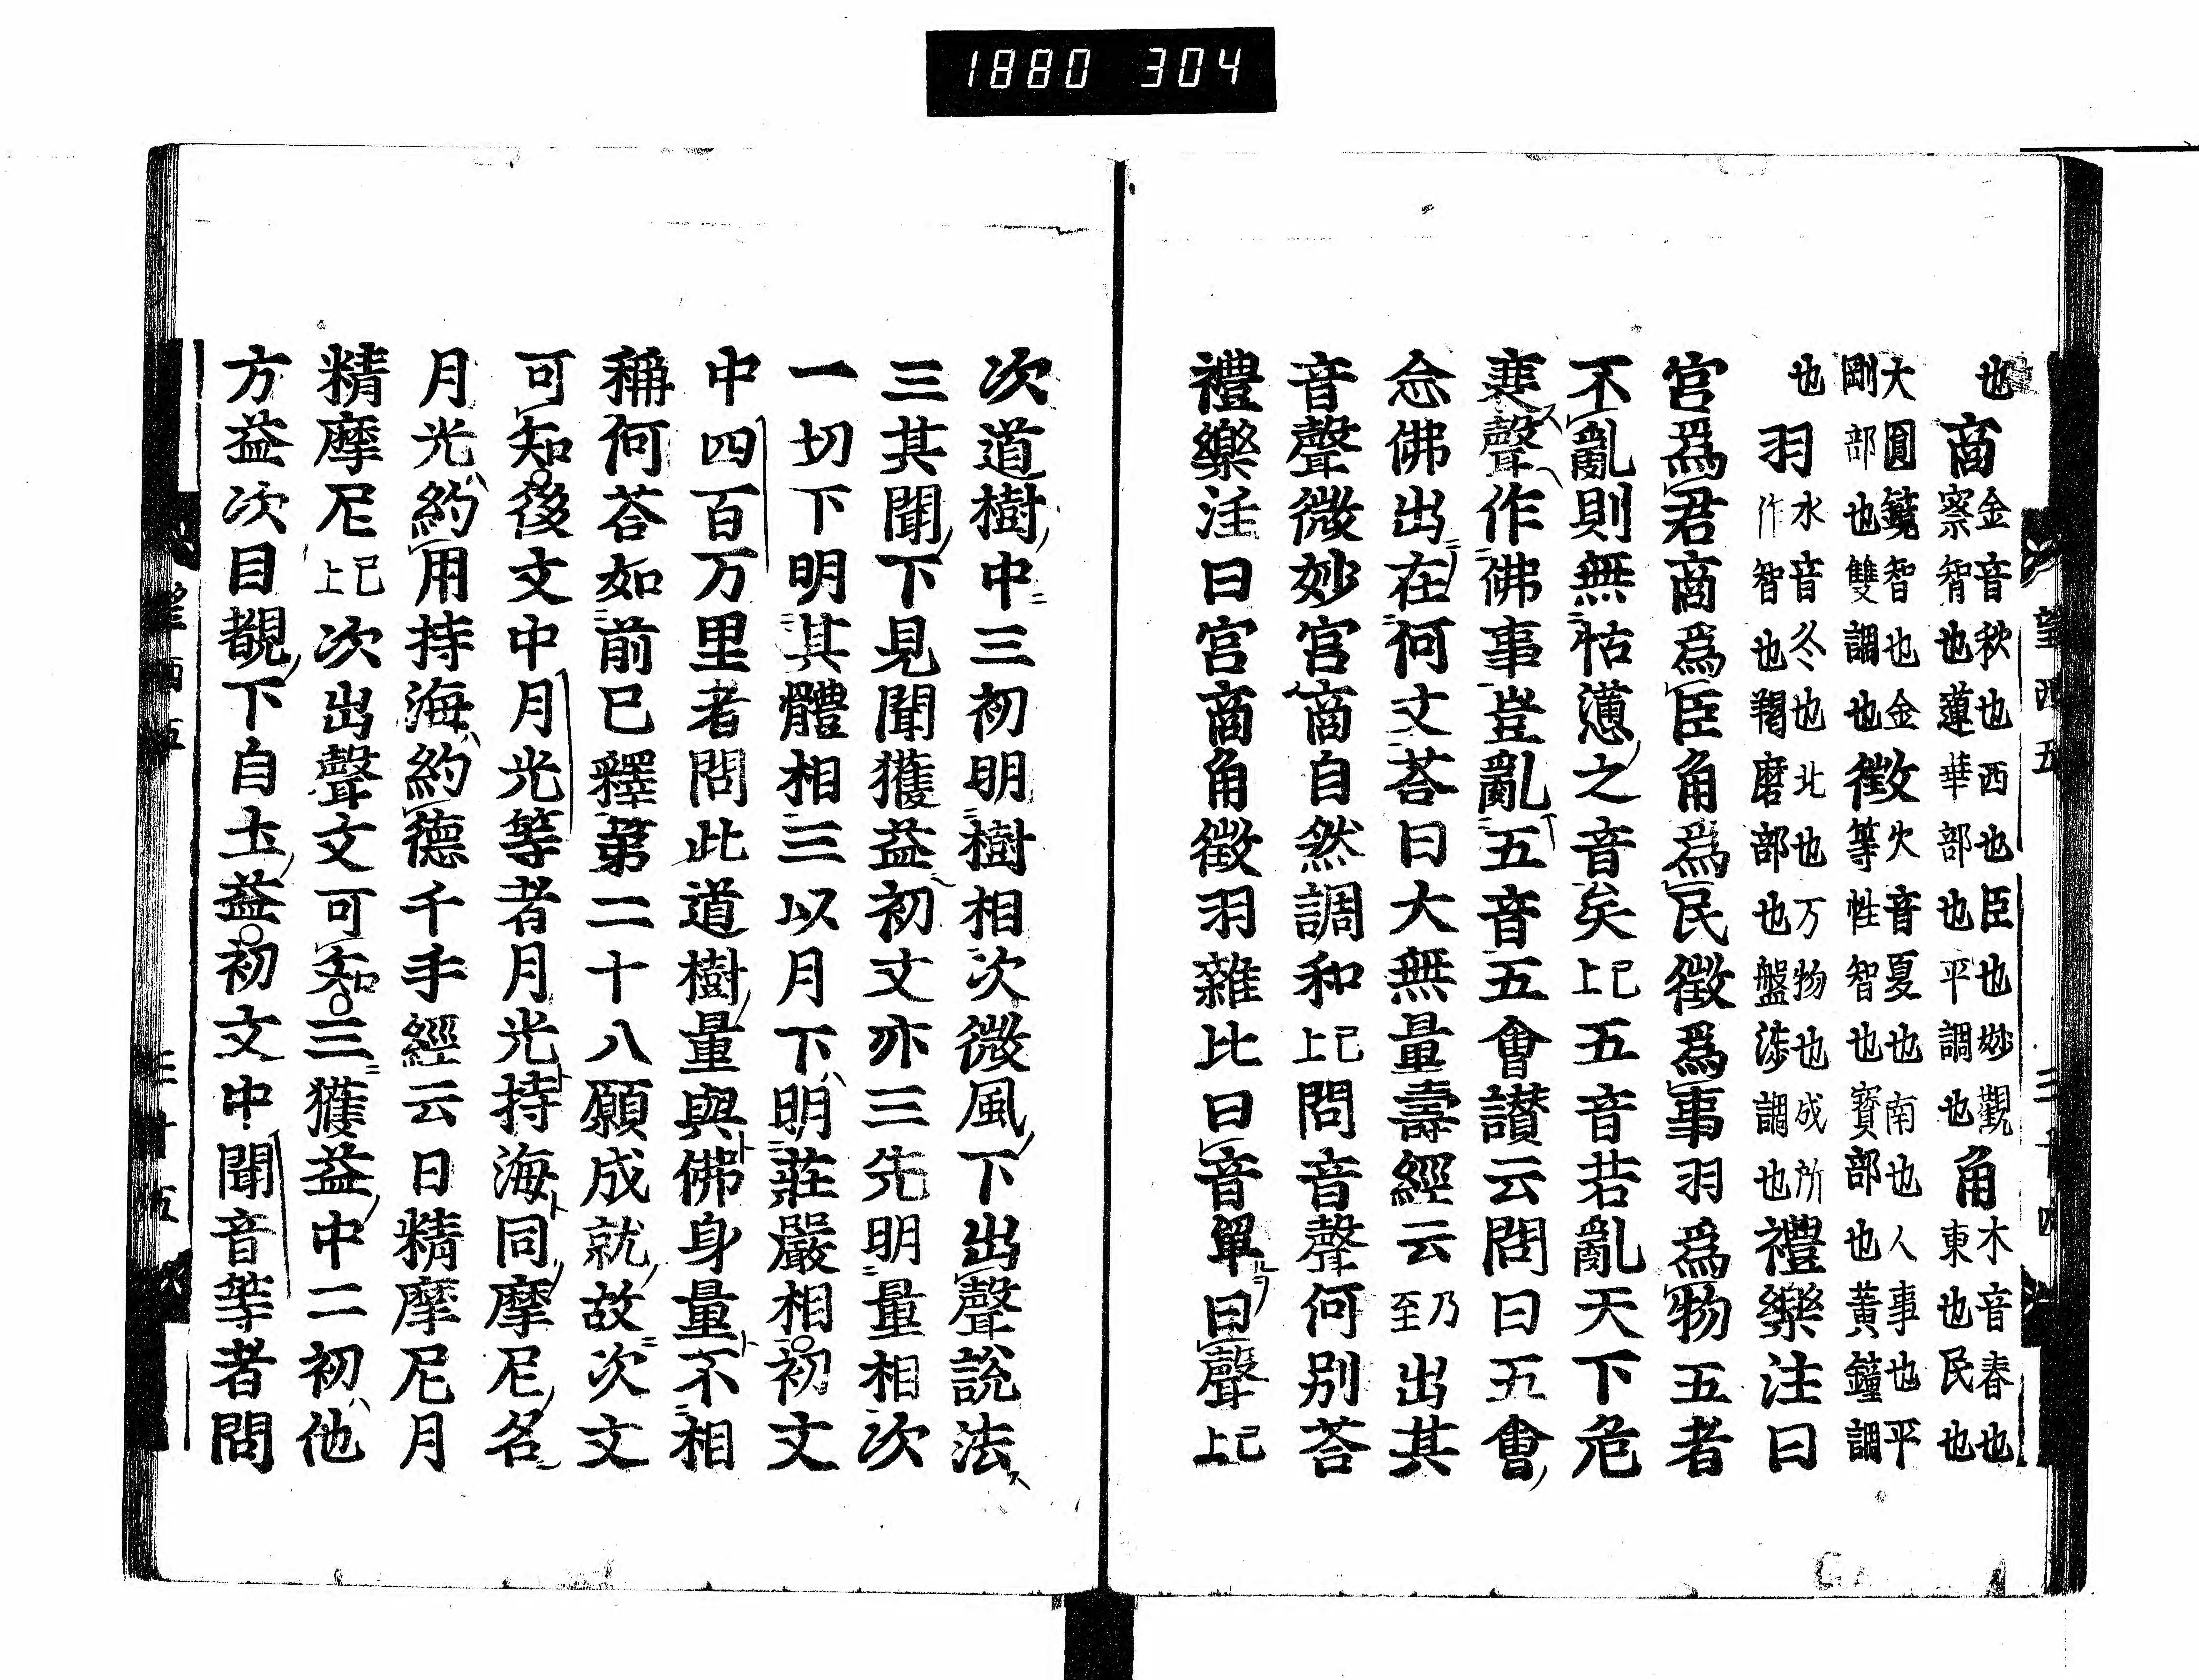 1880 304
望西五 三十四
也商金音秋也西也臣也妙觀察智也蓮華部也平調也角木音春也東也民也
大圓鏡智也金剛部也雙調也徴火音夏也南也人事也平等性智也寶部也黃鐘調
也羽水音冬也北也万物也成所作智也羯磨部也盤涉調也禮樂注曰
宮爲君商爲臣角爲民徴爲事羽爲物五者
不亂則無怗懘之音矣已上五音若亂天下危
喪聲作佛事豈亂五音五會讃云問曰五會
念佛出在何文荅曰大無量壽經云乃至出其
音聲微妙宮商自然調和已上問音聲何别荅
禮樂注曰宮商角徴羽雜比曰音單曰聲已上
次道樹中三初明樹相次微風下出聲說法
三其聞下見聞獲益初文亦三先明量相次
一切下明其體相三以月下明莊嚴相初文
中四百万里者問此道樹量與佛身量不相
稱何荅如前已釋第二十八願成就故次文
可知後文中月光等者月光持海同摩尼名
月光約用持海約德千手經云日精摩尼月
精摩尼已上次出聲文可知三獲益中二初他
方益次目覩下自土益初文中聞音等者問
望西五 三十五